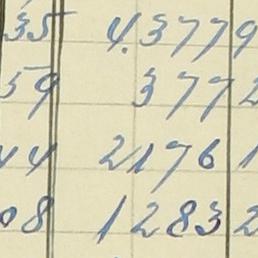 35 4.3779
59 3772
44 21761
08 12832